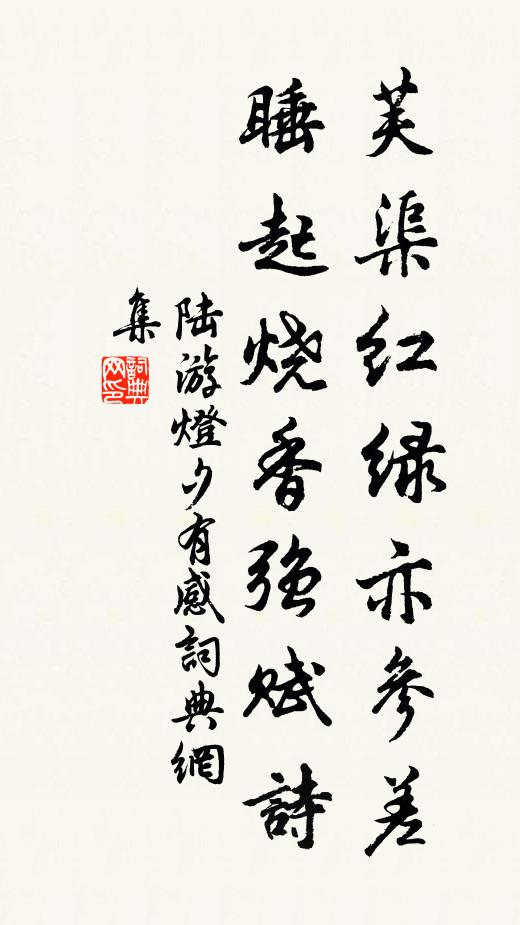 芙渠红绿亦参差
睡起烧香强赋詩
陆游燈夕有感詞典網
集
詞典网印